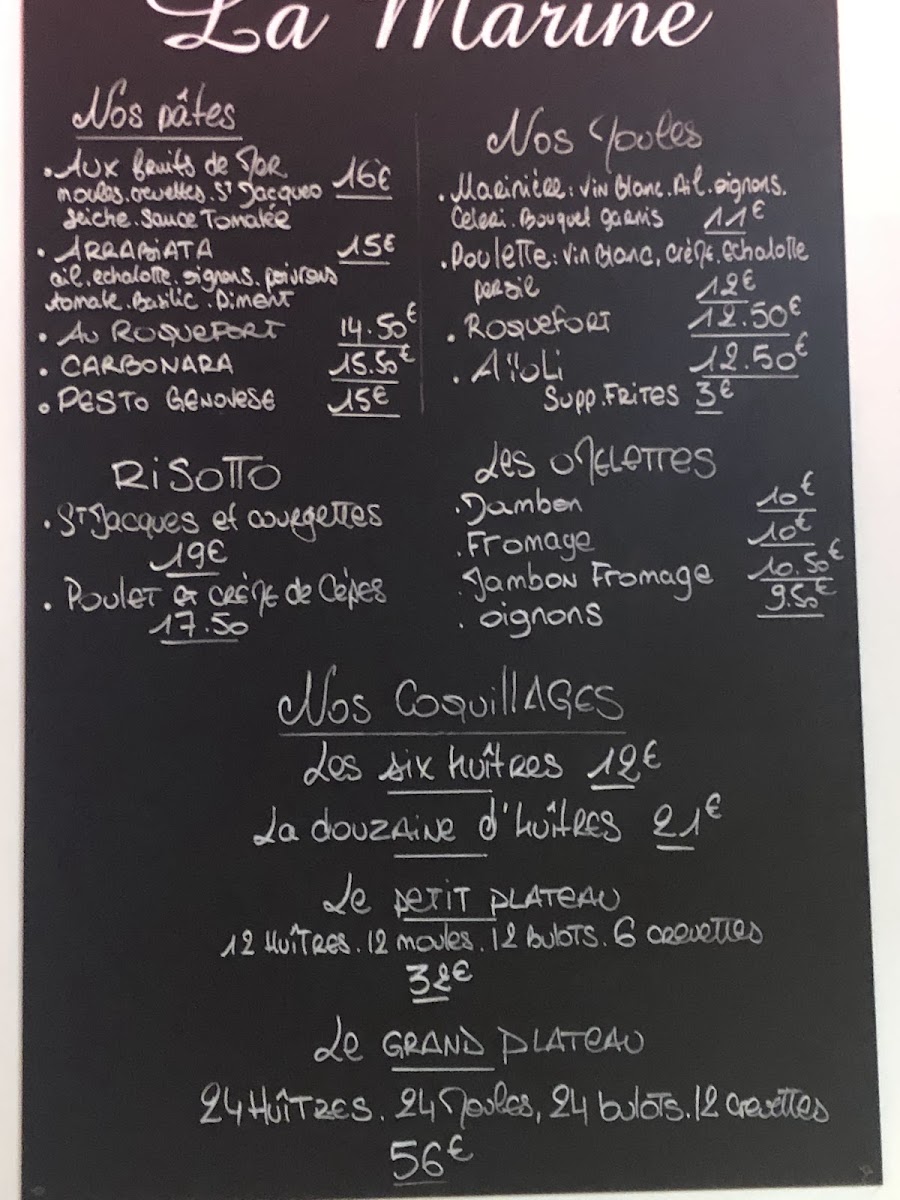 La Marine
Nos pâtes
. Aux fruits de Mer 16€
moules. crevettes. St Jacques
seiche. Sauce Tomatée
. ARRABIATA 15€
ail. echalotte. oignons. poivrons
tomate. Basilic. Piment
. Au ROQUEFORT 14.50€
. CARBONARA 15.50€
. PESTO GENOVESE 15€
Nos Moules
. Marinière: Vin Blanc. Ail. oignons.
Celeri. Bouquet garnis 11€
. Poulette: Vin Blanc, crème. echalotte
persil 12€
. Roquefort 12.50€
. Aïoli 12.50€
Supp. FRITES 3€
RISOTTO
. St Jacques et courgettes
19€
. Poulet et crème de Cèpes
17.50
Les OMELETTES
. Jambon 10€
. Fromage 10€
. Jambon Fromage 10.50€
. oignons 9.50€
Nos COQUILLAGES
Les six huîtres 12€
La douzaine d'huîtres 21€
Le PETIT PLATEAU
12 Huîtres. 12 moules. 12 bulots. 6 crevettes
32€
Le GRAND PLATEAU
24 HUÎTRES. 24 Moules, 24 bulots. 12 crevettes
56€